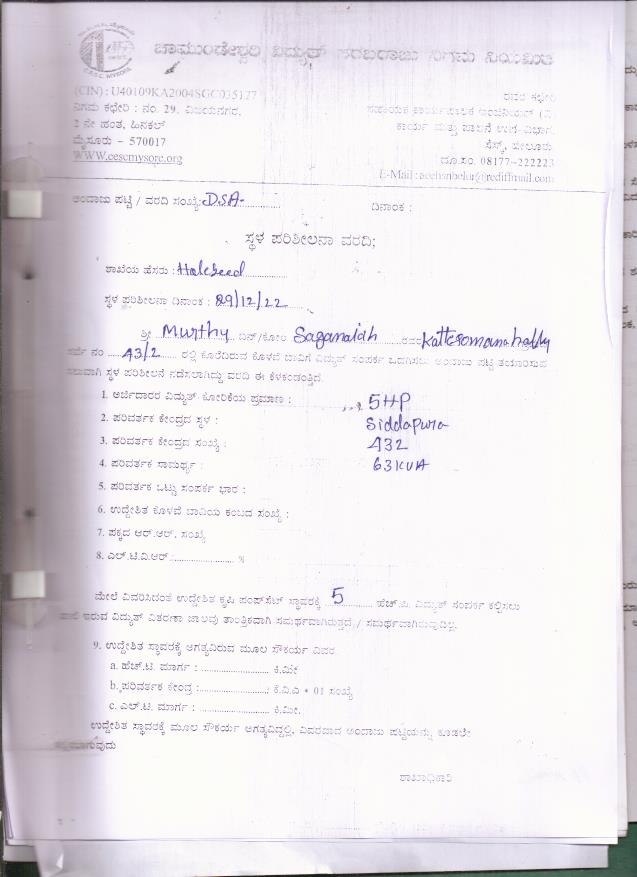 C.E.S.C MYSORE
ಚಾಮುಂಡೇಶ್ವರಿ ವಿದ್ಯುತ್ ಸರಬರಾಜು ನಿಗಮ ನಿಯಮಿತ
(CIN) : U40109KA2004SGC035177
ನಿಗಮ ಕಛೇರಿ : ನಂ. 29, ವಿಜಯನಗರ,
2 ನೇ ಹಂತ, ಹಿನಕಲ್
ಮೈಸೂರು - 570017
WWW.cescmysore.org
ರವರ ಕಛೇರಿ
ಸಹಾಯಕ ಕಾರ್ಯಪಾಲಕ ಇಂಜಿನಿಯರ್ (ವಿ)
ಕಾರ್ಯ ಮತ್ತು ಪಾಲನೆ ಉಪ ವಿಭಾಗ
ಸೆಸ್ಕ್, ಬೇಲೂರು
ದೂ.ಸಂ. 08177-222223
E-Mail : aeehsnbelur@rediffmail.com
ಅಂದಾಜು ಪಟ್ಟಿ / ವರದಿ ಸಂಖ್ಯೆ: DSA- ದಿನಾಂಕ :
ಸ್ಥಳ ಪರಿಶೀಲನಾ ವರದಿ;
ಶಾಖೆಯ ಹೆಸರು : Halebeed
ಸ್ಥಳ ಪರಿಶೀಲನಾ ದಿನಾಂಕ : 29/12/22
ಶ್ರೀ Murthy ಬಿನ್/ಕೋಂ Saganaiah Kattesomanahally
ಸರ್ವೆ ನಂ 43/2 ರಲ್ಲಿ ಕೊರೆದಿರುವ ಕೊಳವೆ ಬಾವಿಗೆ ವಿದ್ಯುತ್ ಸಂಪರ್ಕ ಒದಗಿಸಲು ಅಂದಾಜು ಪಟ್ಟಿ ತಯಾರಿಸುವ
ಸಲುವಾಗಿ ಸ್ಥಳ ಪರಿಶೀಲನೆ ನಡೆಸಲಾಗಿದ್ದು ವರದಿ ಈ ಕೆಳಕಂಡಂತ್ತಿದೆ.
1. ಅರ್ಜಿದಾರರ ವಿದ್ಯುತ್ ಕೋರಿಕೆಯ ಪ್ರಮಾಣ : 5HP
2. ಪರಿವರ್ತಕ ಕೇಂದ್ರದ ಸ್ಥಳ : Siddapura
3. ಪರಿವರ್ತಕ ಕೇಂದ್ರದ ಸಂಖ್ಯೆ : 432
4. ಪರಿವರ್ತಕ ಸಾಮರ್ಥ್ಯ : 63KVA
5. ಪರಿವರ್ತಕ ಒಟ್ಟು ಸಂಪರ್ಕ ಭಾರ :
6. ಉದ್ದೇಶಿತ ಕೊಳವೆ ಬಾವಿಯ ಕಂಬದ ಸಂಖ್ಯೆ :
7. ಪಕ್ಕದ ಆರ್.ಆರ್. ಸಂಖ್ಯೆ
8. ಎಲ್.ಟಿ.ವಿ.ಆರ್ : %
ಮೇಲೆ ವಿವರಿಸಿದಂತೆ ಉದ್ದೇಶಿತ ಕೃಷಿ ಪಂಪ್‌ಸೆಟ್ ಸ್ಥಾವರಕ್ಕೆ 5 ಹೆಚ್.ಪಿ. ವಿದ್ಯುತ್ ಸಂಪರ್ಕ ಕಲ್ಪಿಸಲು
ಹಾಲಿ ಇರುವ ವಿದ್ಯುತ್ ವಿತರಣಾ ಜಾಲವು ತಾಂತ್ರಿಕವಾಗಿ ಸಮರ್ಥವಾಗಿರುತ್ತದೆ / ಸಮರ್ಥವಾಗಿರುವುದಿಲ್ಲ.
9. ಉದ್ದೇಶಿತ ಸ್ಥಾವರಕ್ಕೆ ಅಗತ್ಯವಿರುವ ಮೂಲ ಸೌಕರ್ಯ ವಿವರ
a. ಹೆಚ್.ಟಿ. ಮಾರ್ಗ : ಕಿ.ಮೀ
b. ಪರಿವರ್ತಕ ಕೇಂದ್ರ : ಕೆ.ವಿ.ಎ * 01 ಸಂಖ್ಯೆ
c. ಎಲ್.ಟಿ. ಮಾರ್ಗ : ಕಿ.ಮೀ.
ಉದ್ದೇಶಿತ ಸ್ಥಾವರಕ್ಕೆ ಮೂಲ ಸೌಕರ್ಯ ಅಗತ್ಯವಿದ್ದಲ್ಲಿ, ವಿವರವಾದ ಅಂದಾಜು ಪಟ್ಟಿಯನ್ನು ಕೂಡಲೇ
ಶಾಖಾಧಿಕಾರಿ